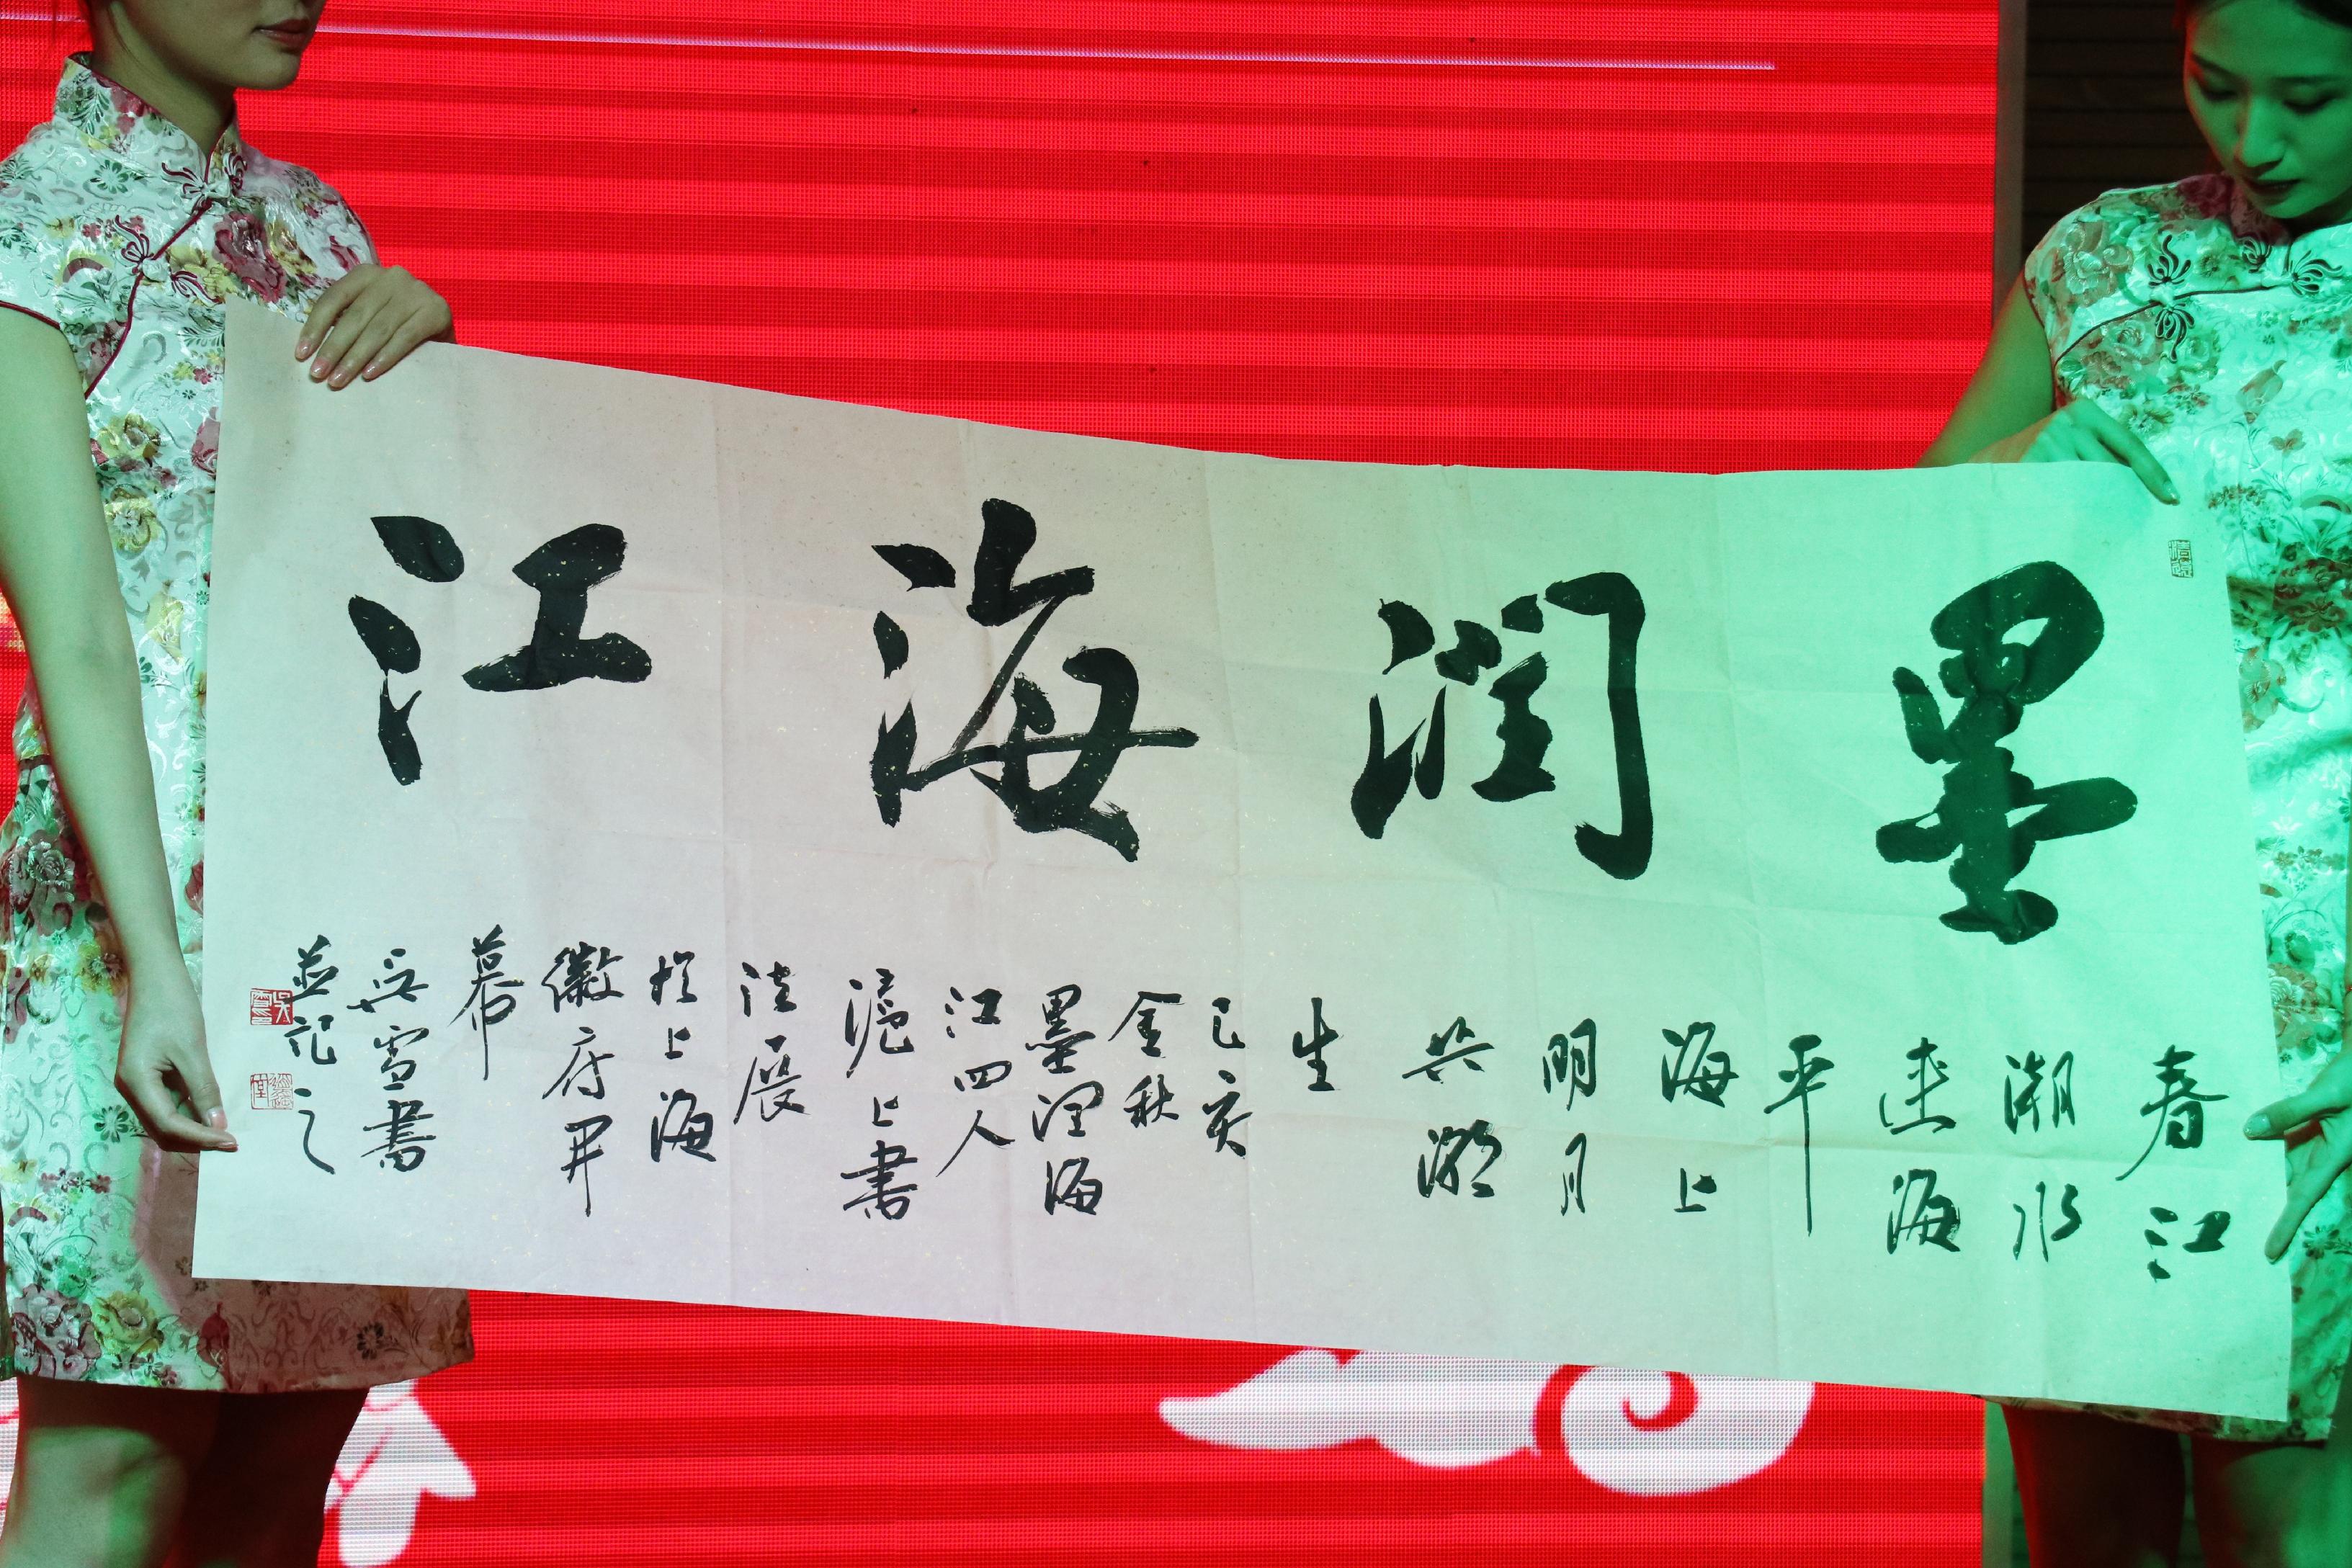 墨润海江
春江
潮水
连海
平
海上
明月
共潮
生
己亥
金秋
墨润海
江四人
滬上書
法展
於上海
徽府开
幕
吴雪書
並记之